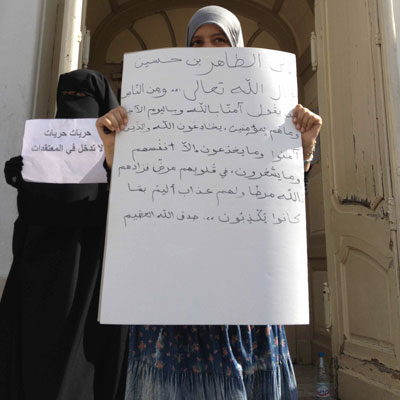 حريات حريات
لا تدخل في المعتقدات
الى الطاهر بن حسين
قال الله تعالى .. ومن الناس
من يقول آمنا بالله وباليوم الآخر
وماهم بمؤمنين. يخادعون الله والذين
آمنوا وما يخدعون الآ أنفسهم
وما يشعرون. في قلوبهم مرض فزادهم
الله مرضا ولهم عذاب أليم بما
كانوا يَكْذِبون .. صدق الله العظيم